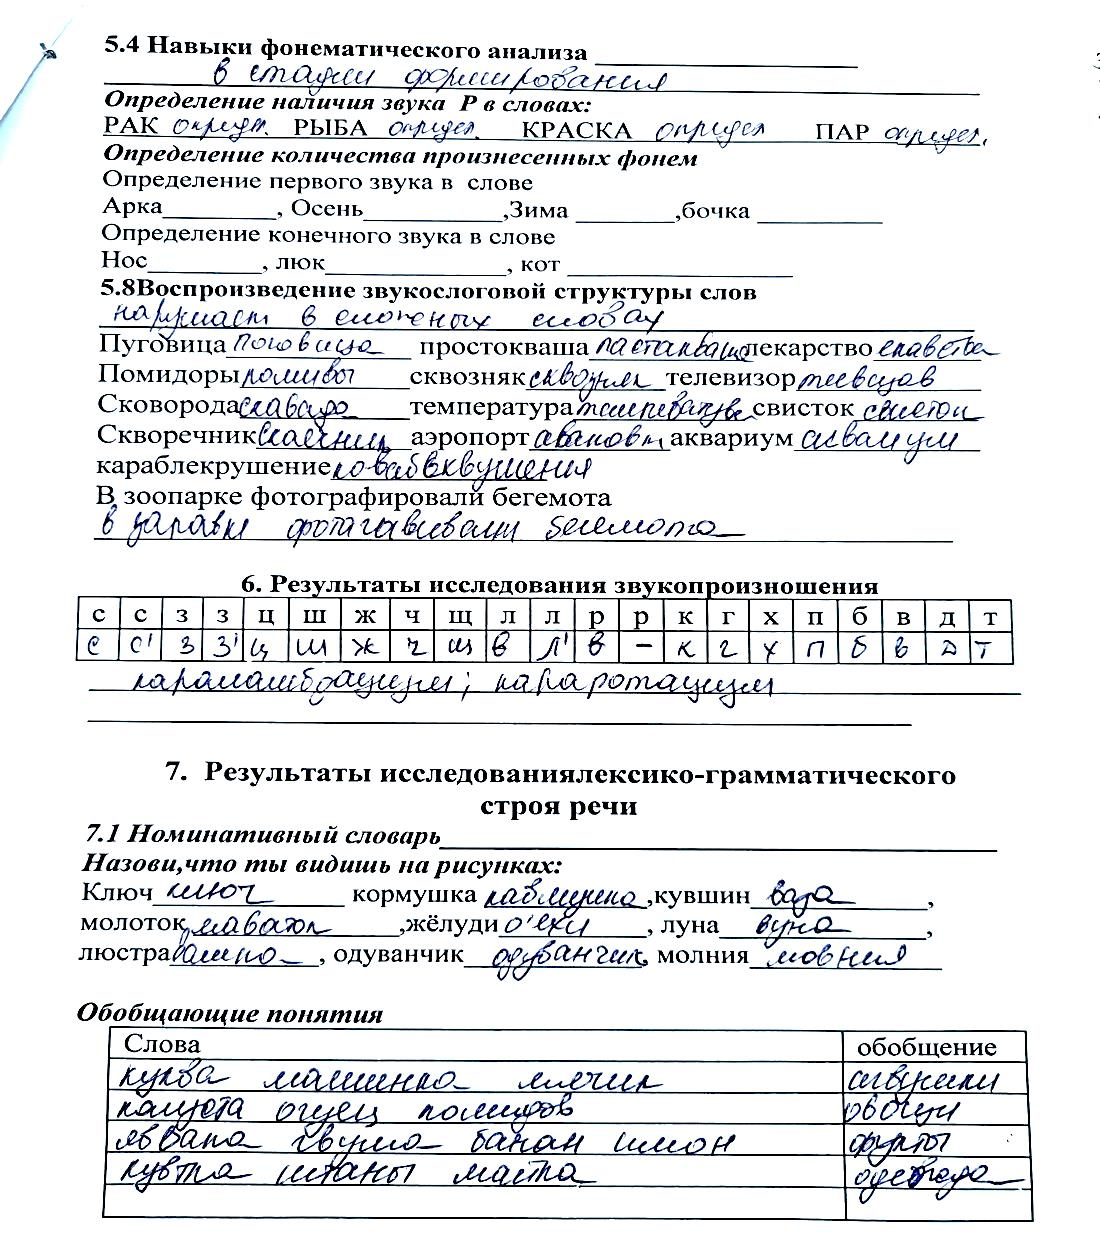 5.4 Навыки фонематического анализа
в стадии формирования
Определение наличия звука Р в словах:
РАК опредт. РЫБА определ. КРАСКА определ ПАР определ.
Определение количества произнесенных фонем
Определение первого звука в слове
Арка_________, Осень___________,Зима ________,бочка __________
Определение конечного звука в слове
Нос_________, люк______________, кот __________________
5.8Воспроизведение звукослоговой структуры слов
нарушает в сложных словах
Пуговица поговица простокваша пастакваша лекарство екавства
Помидоры помивы сквозняк сквозняк телевизор теевизав
Сковорода скавада температура свисток свисток
Скворечник аэропорт аэквариум аквамум
караблекрушение коваблквушения
В зоопарке фотографировали бегемота
в запавке фотагавивали бегемота
6. Результаты исследования звукопроизношения
с с з з ц ш ж ч щ л л р р к г х п б в д т
с с' з з' ц ш ж ч щ в л' в – к г х п б в д т
параламбдацизм; параротацизм
7. Результаты исследованиялексико-грамматического
строя речи
7.1 Номинативный словарь
Назови,что ты видишь на рисунках:
Ключ ключ кормушка кавмушка,кувшин ваза,
молоток маваток,жёлуди о'ехи, луна вуна,
люстра вампа, одуванчик одуванчик, молния мовния
Обобщающие понятия
Слова обобщение
куква машинка мячик игвушки
капуста огуец помидов овощи
ябвака гвуша банан имон фукты
кувтка штаны майка одежда